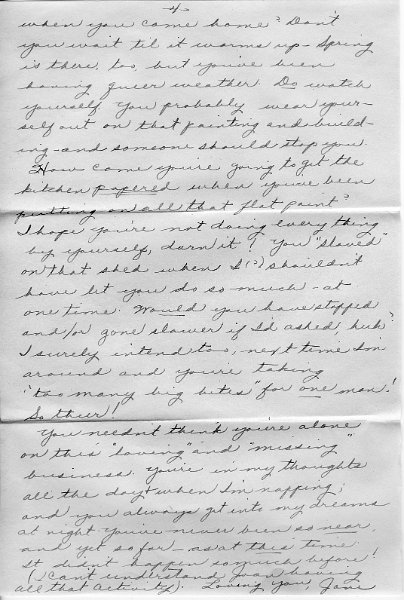 -4-
when you come home? Don't
you wait til it warms up - Spring
is there, too, but you've been
having queer weather. Do watch
yourself. You probably wear your-
self out on that painting and build-
ing - and someone should stop you.
How come you're going to get the
kitchen papered when you've been
putting on all that flat paint?
I hope you're not doing everything
by yourself, darn it! You "slaved"
on that shed when I(?) shouldn't
have let you do so much - at
one time. Would you have stopped
and/or gone slower if I'd asked, huh?
I surely intend too, next time I'm
around and you're taking
"too many big bites" for one man!
So thier!
You needn't think you're alone
on this "loving" and "missing"
business. You're in my thoughts
all the day + when I'm napping;
and you always get into my dreams
at night. You've never been so near,
and yet so far - as at this time.
It didn't happen so much before!
(I can't understand your having
all that activity). Loving you, Jane